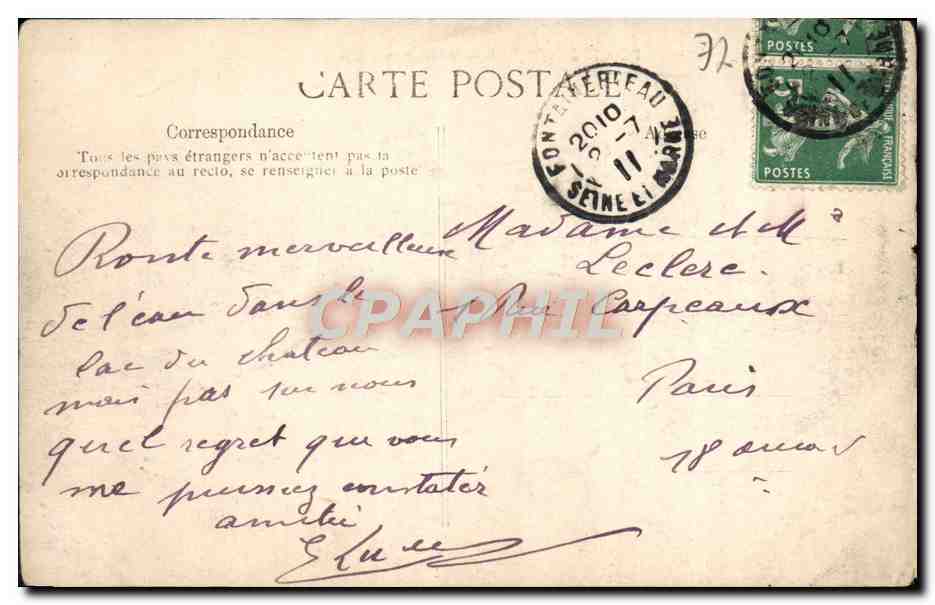 72
CARTE POSTALE
POSTES
5
POSTES
FRANÇAISE
FONTAINEBLEAU
2010
2-7
11
SEINE ET MARNE
Correspondance
Tous les pays étrangers n'acceptent pas la
correspondance au recto, se renseigner à la poste
Route merveilleuse
de l'eau dans le
lac du chateau
mais pas sur nous
quel regret que vous
me puissiez constater
amitié
Madame et M
Leclerc
1 Rue Carpeaux
Paris
18
CPAPHIL